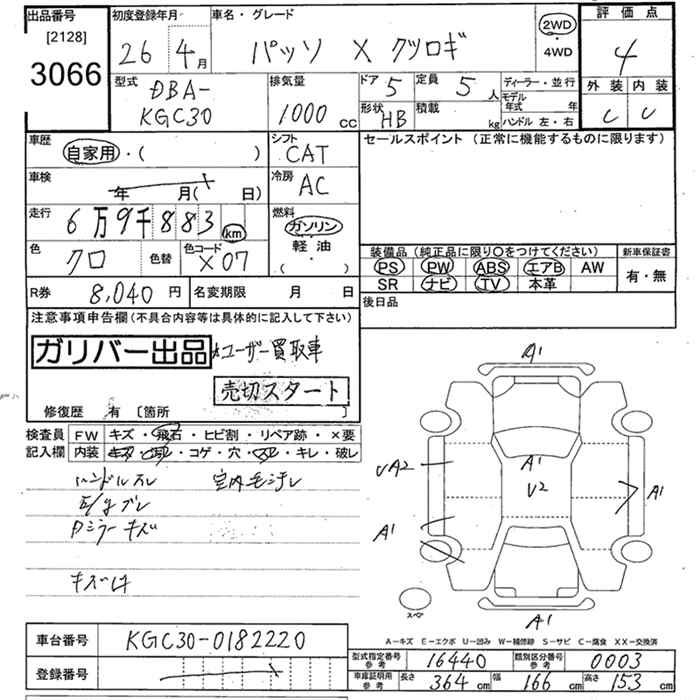 出品番号
[2128]
3066
初度登録年月
26年4月
車名・グレード
パッソ X クツロギ
2WD
・
4WD
評価点
4
外装 内装
C C
型式
DBA-
KGC30
排気量
1000 cc
ドア 5
定員 5人
形状 HB
積載 kg
ディーラー・並行
モデル年式 年
ハンドル 左・右
車歴
自家用・( )
シフト
CAT
車検
年 月( 日)
冷房
AC
走行
6万9千883 km
燃料
ガソリン
軽油
( ・ )
色
クロ
色替
色コード
X07
R券 8,040円
名変期限 月 日
セールスポイント (正常に機能するものに限ります)
装備品 (純正品に限り○をつけてください)
PS PW ABS エアB AW
SR ナビ TV 本革
新車保証書
有・無
後日品
注意事項申告欄(不具合内容等は具体的に記入して下さい)
ガリバー出品
ユーザー買取車
売切スタート
修復歴 有 〔箇所 〕
検査員
記入欄
FW キズ・飛石・ヒビ割・リペア跡・×要
内装 キズ・汚レ・コゲ・穴・スレ・キレ・破レ
ハンドルスレ 室内モ汚レ
E/gブレ
Dミラーキズ
キズLH
A1
UA2
A1
U2
A1
A1
A1
スペア
A-キズ E-エクボ U-凹み W-補修跡 S-サビ C-腐食 XX-交換済
車台番号
KGC30-0182220
登録番号
型式指定番号
参考
16440
類別区分番号
参考
0003
車庫証明用
参考
長さ 364cm
幅 166cm
高さ 153cm